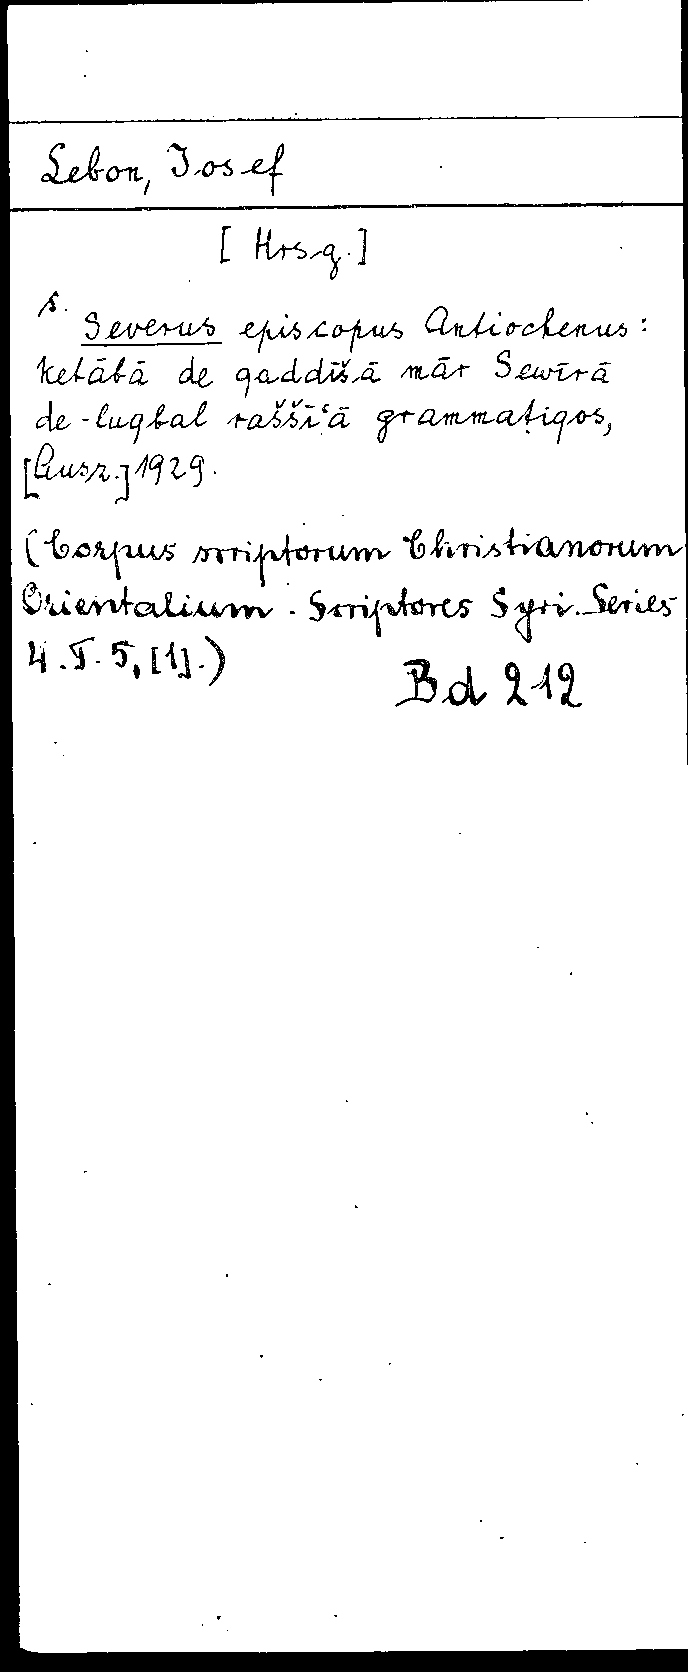 Lebon, Josef
[Hrsg.]
s.
Severus episcopus Antiochenus:
Ketābā de qaddīšā mār Sewīrā
de-luqbal raššīʻā grammaṭiqos,
[Ausz.] 1929.
(Corpus scriptorum Christianorum
Orientalium. Scriptores Syri. Series
4. T. 5, [1].)
Bd 212